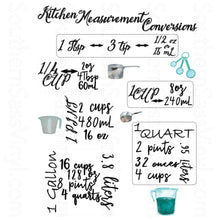 Kitchen Measurement
Conversions
1 Tbsp ↔ 3 tsp ↔ 1/2 oz
15 mL
1/4 CUP ↔ 2oz
4Tbsp
60ml
1 CUP 8oz
240mL
1 PINT
2 cups
480 mL
16 oz
1 QUART
2 pints
32 ounces
4 cups
.95 liters
1 Gallon
16 cups
128 oz
8 pints
4 quarts
3.8 liters